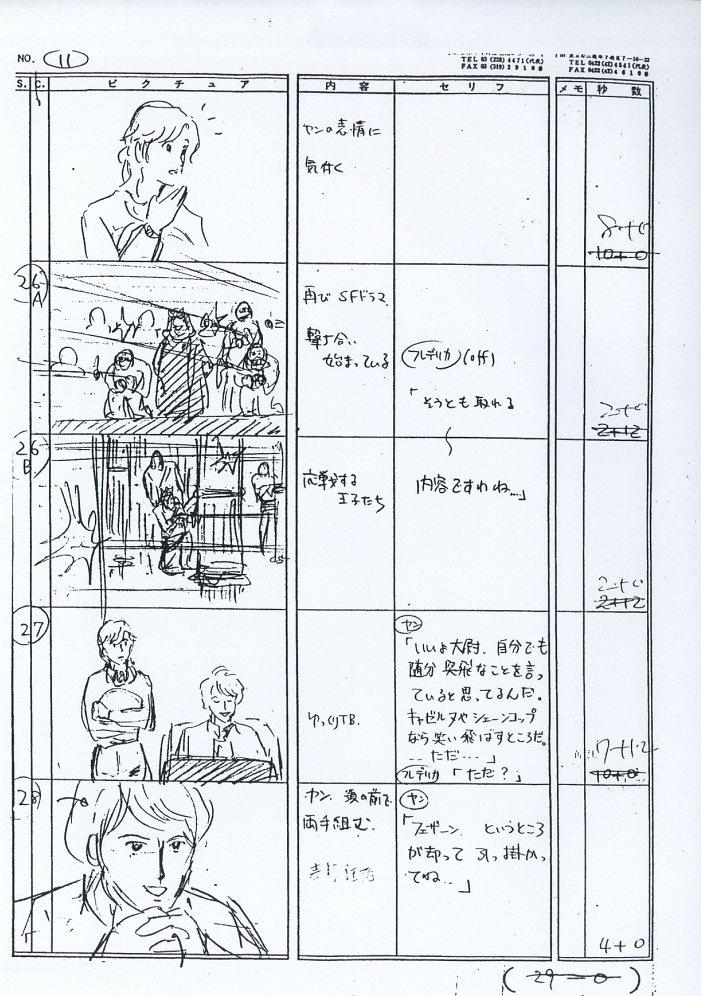 NO. 11
TEL 03 (228) 4471(代表)
TEL 0422 (42) 4541(代表)
S. C. ピクチュア 内容 セリフ メモ 秒数
ヤンの表情に
気付く
8+0
10+0
26-A
再び SFドラマ
撃ち合い
始まっている
フレデリカ (off)
「そうとも取れる
2+0
2+12
26-B
応戦する
王子たち
内容ですわね…」
2+0
2+12
27
ゆっくりT.B.
ヤン
「いいよ大尉. 自分でも
随分 突飛なことを言っ
ていると思ってるんだ。
キャゼルヌや シェーンコップ
なら笑い飛ばすところだ。
‥‥ただ…」
フレデリカ 「ただ?」
7+12
10+0
28
ヤン. 顔の前で
両手組む.
ヤン
「フェザーン. というところ
が却って 引っ掛かっ
てね…」
4+0
(29-0)